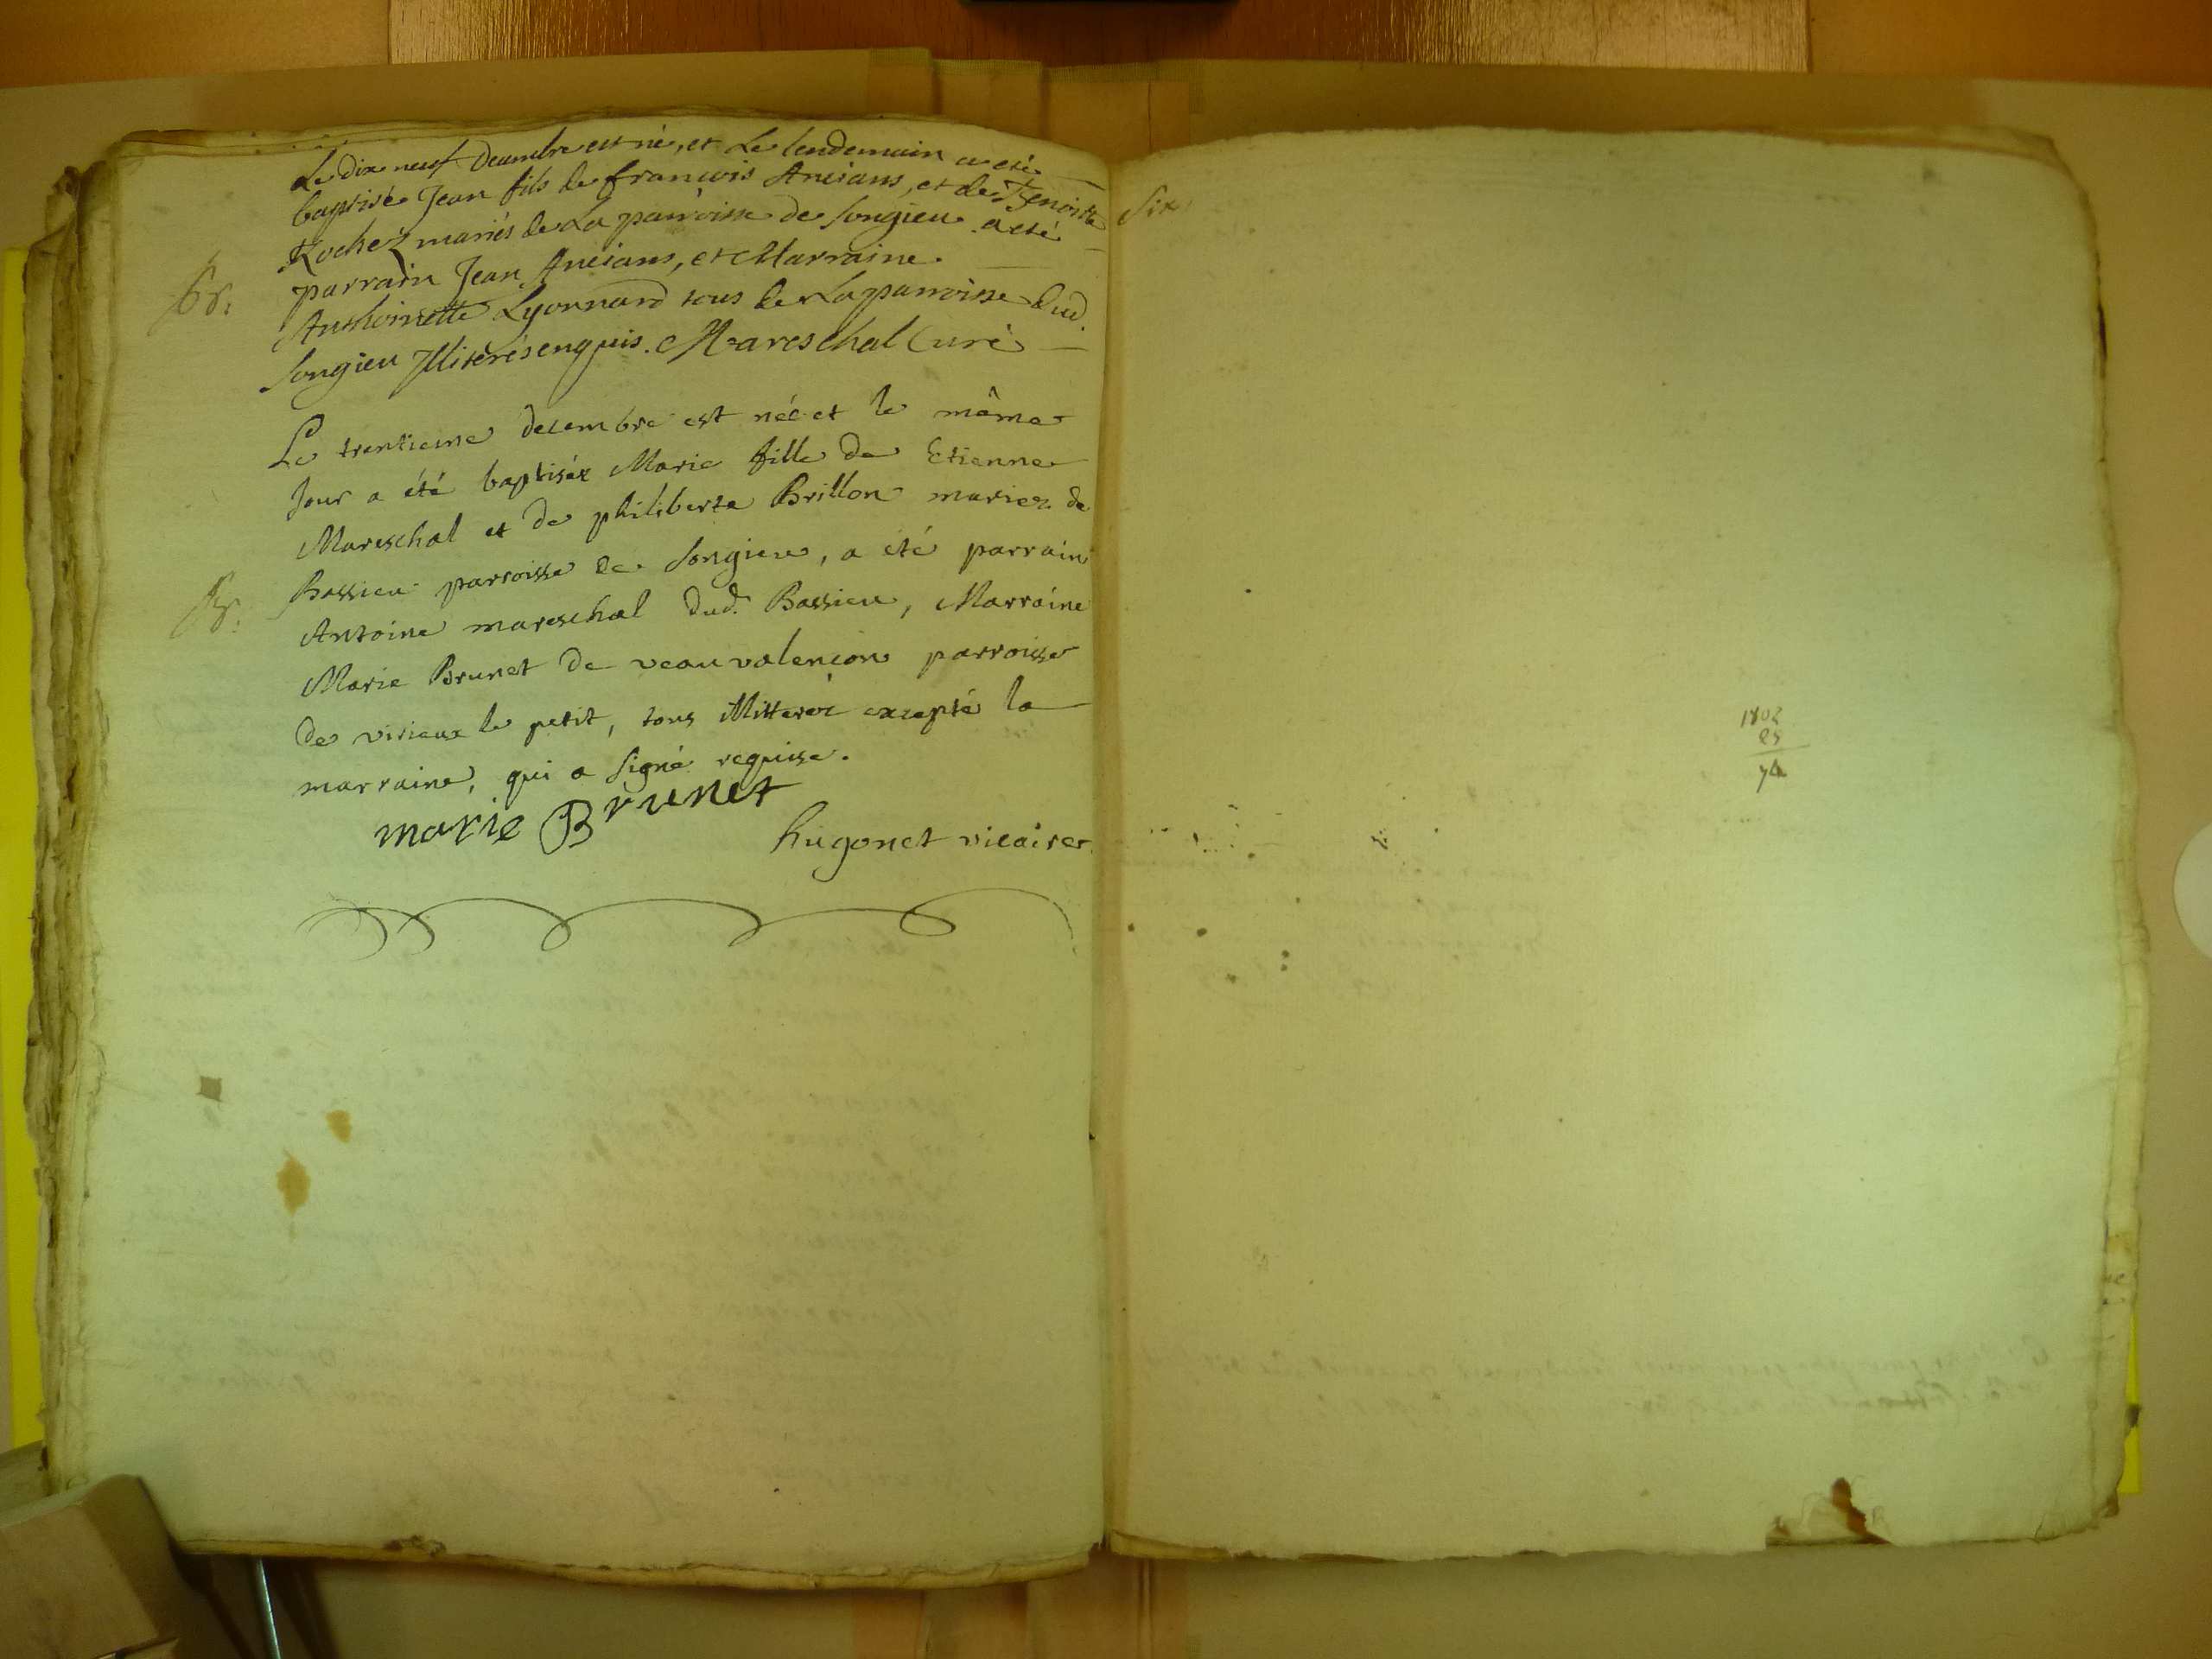 Le dix neuf Decembre est né, et Le lendemain a eté
baptisé Jean fils de francois Ancians, et de Benoitte
Rochez mariés de La parroisse de songieu a eté
parrain Jean Ancians, et Marraine.
Anthoinette Lyonnard tous de La parroisse dud.
songieu Illiterés enquis. Mareschal Curé
Le trentieme decembre est née et le même
Jour a été baptisée Marie fille de Etienne
Mareschal et de philiberte Brillon mariez de
Bassieu parroisse de songieu, a eté parrain
Antoine mareschal dud. Bassieu, Marraine
Marie Brunet de veauvalencon parroisse
de virieux le petit, tous illitterez excepté la
marraine, qui a signé requise.
marie Brunet
hugonet vicaire
B.
B.
Six
1802